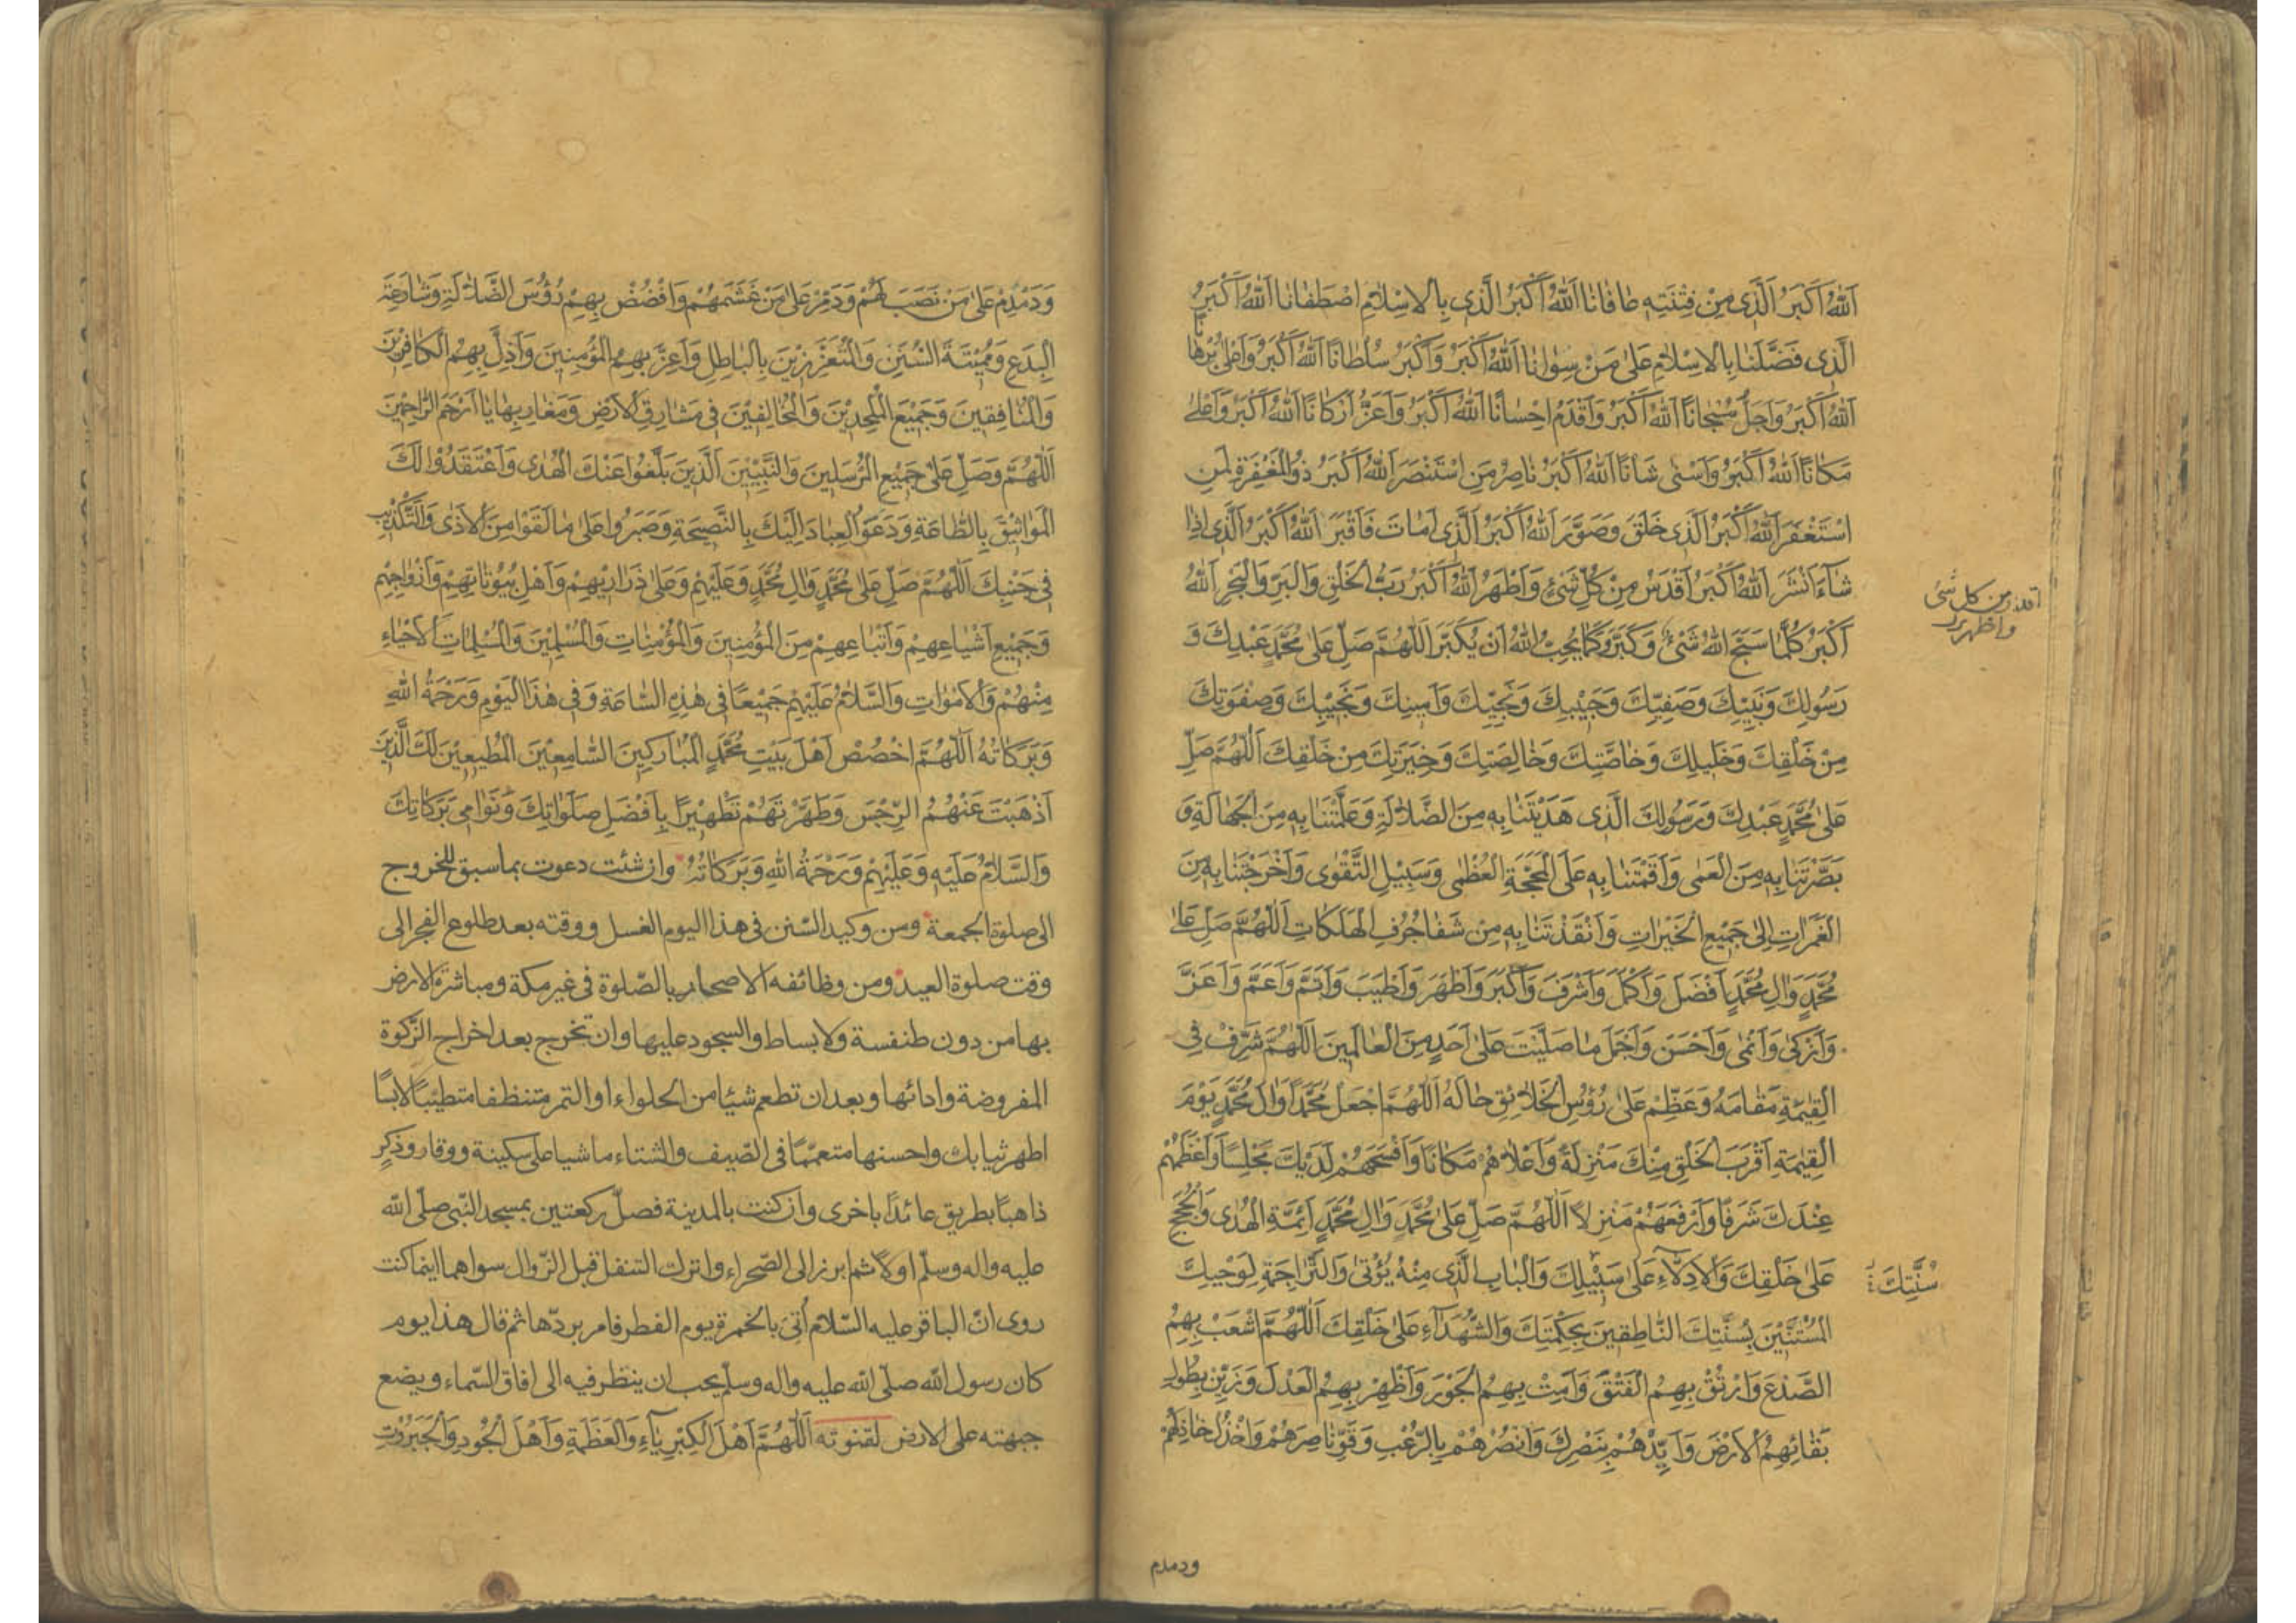 اَللهُ اَكْبَرُ الَّذى مِنْ فِتْنَتِهِ عَافَانَا اَللهُ اَكْبَرُ الَّذى بِالْاِسْلَامِ اصْطَفَانَا اَللهُ اَكْبَرُ
الَّذى فَضَّلَنَا بِالْاِسْلَامِ عَلىٰ مَنْ سِوَانَا اَللهُ اَكْبَرُ وَاَكْبَرُ سُلْطَانًا اَللهُ اَكْبَرُ وَاَعْلىٰ بُرْهَانًا
اَللهُ اَكْبَرُ وَاَجَلُّ سُبْحَانًا اَللهُ اَكْبَرُ وَاَقْدَمُ اِحْسَانًا اَللهُ اَكْبَرُ وَاَعَزُّ اَرْكَانًا اَللهُ اَكْبَرُ وَاَعْلىٰ
مَكَانًا اَللهُ اَكْبَرُ وَاَسْنىٰ شَانًا اَللهُ اَكْبَرُ نَاصِرُ مَنِ اسْتَنْصَرَ اَللهُ اَكْبَرُ ذُو الْمَغْفِرَةِ لِمَنِ
اسْتَغْفَرَ اَللهُ اَكْبَرُ الَّذى خَلَقَ وَصَوَّرَ اَللهُ اَكْبَرُ الَّذى اَمَاتَ فَاَقْبَرَ اَللهُ اَكْبَرُ الَّذى اِذَا
شَاءَ اَنْشَرَ اَللهُ اَكْبَرُ اَقْدَسُ مِنْ كُلِّ شَىْءٍ وَاَظْهَرُ اَللهُ اَكْبَرُ رَبُّ الْخَلْقِ وَالْبَرِّ وَالْبَحْرِ اَللهُ
اقدر من كل شىء واظهر
اَكْبَرُ كُلَّمَا سَبَّحَ اللهَ شَىْءٌ وَكَبَّرَ وَكَمَا يُحِبُّ اللهُ اَنْ يُكَبَّرَ اَللّٰهُمَّ صَلِّ عَلىٰ مُحَمَّدٍ عَبْدِكَ وَ
رَسُولِكَ وَنَبِيِّكَ وَصَفِيِّكَ وَحَبِيْبِكَ وَنَجِيِّكَ وَاَمِينِكَ وَنَجِيْبِكَ وَصَفْوَتِكَ
مِنْ خَلْقِكَ وَخَلِيلِكَ وَخَاصَّتِكَ وَخَالِصَتِكَ وَخِيَرَتِكَ مِنْ خَلْقِكَ اَللّٰهُمَّ صَلِّ
عَلىٰ مُحَمَّدٍ عَبْدِكَ وَرَسُولِكَ الَّذى هَدَيْتَنَا بِهِ مِنَ الضَّلَالَةِ وَعَلَّمْتَنَا بِهِ مِنَ الْجَهَالَةِ وَ
بَصَّرْتَنَا بِهِ مِنَ الْعَمٰى وَاَقَمْتَنَا بِهِ عَلَى الْمَحَجَّةِ الْعُظْمٰى وَسَبِيْلِ التَّقْوٰى وَاَخْرَجْتَنَا بِهِ مِنَ
الْغَمَرَاتِ اِلىٰ جَمِيْعِ الْخَيْرَاتِ وَاَنْقَذْتَنَا بِهِ مِنْ شَفَا جُرُفِ الْهَلَكَاتِ اَللّٰهُمَّ صَلِّ عَلىٰ
مُحَمَّدٍ وَاٰلِ مُحَمَّدٍ اَفْضَلَ وَاَكْمَلَ وَاَشْرَفَ وَاَكْبَرَ وَاَطْهَرَ وَاَطْيَبَ وَاَتَمَّ وَاَعَمَّ وَاَعَزَّ
وَاَزْكىٰ وَاَنْمىٰ وَاَحْسَنَ وَاَجْمَلَ مَا صَلَّيْتَ عَلىٰ اَحَدٍ مِنَ الْعَالَمِينَ اَللّٰهُمَّ شَرِّفْ فِى
الْقِيٰمَةِ مَقَامَهُ وَعَظِّمْ عَلىٰ رُؤُسِ الْخَلَائِقِ حَالَهُ اَللّٰهُمَّ اجْعَلْ مُحَمَّدًا وَاٰلَ مُحَمَّدٍ يَوْمَ
الْقِيٰمَةِ اَقْرَبَ الْخَلْقِ مِنْكَ مَنْزِلَةً وَاَعْلَاهُمْ مَكَانًا وَاَفْسَحَهُمْ لَدَيْكَ مَجْلِسًا وَاَعْظَمَهُمْ
عِنْدَكَ شَرَفًا وَاَرْفَعَهُمْ مَنْزِلًا اَللّٰهُمَّ صَلِّ عَلىٰ مُحَمَّدٍ وَاٰلِ مُحَمَّدٍ اَئِمَّةِ الْهُدٰى وَالْحُجَجِ
عَلىٰ خَلْقِكَ وَالْاَدِلَّاءِ عَلىٰ سَبِيْلِكَ وَالْبَابِ الَّذى مِنْهُ يُؤْتىٰ وَالتَّرَاجِمَةِ لِوَحْيِكَ
سُنَّتِكَ
الْمُسْتَنِّيْنَ بِسُنَّتِكَ النَّاطِقِينَ بِحِكْمَتِكَ وَالشُّهَدَاءِ عَلىٰ خَلْقِكَ اَللّٰهُمَّ اشْعَبْ بِهِمُ
الصَّدْعَ وَارْتُقْ بِهِمُ الْفَتْقَ وَاَمِتْ بِهِمُ الْجَوْرَ وَاَظْهِرْ بِهِمُ الْعَدْلَ وَزَيِّنْ بِطُولِ
بَقَائِهِمُ الْاَرْضَ وَاَيِّدْهُمْ بِنَصْرِكَ وَانْصُرْهُمْ بِالرُّعْبِ وَقَوِّ نَاصِرَهُمْ وَاخْذُلْ خَاذِلَهُمْ
ودمدم
وَدَمْدِمْ عَلىٰ مَنْ نَصَبَ لَهُمْ وَدَمِّرْ عَلىٰ مَنْ غَشَمَهُمْ وَافْضُضْ بِهِمْ رُؤُسَ الضَّلَالَةِ وَشَارِعَةَ
الْبِدَعِ وَمُمِيْتَةَ السُّنَنِ وَالْمُتَعَزِّزِيْنَ بِالْبَاطِلِ وَاَعِزَّ بِهِمُ الْمُؤْمِنِيْنَ وَاَذِلَّ بِهِمُ الْكَافِرِيْنَ
وَالْمُنَافِقِينَ وَجَمِيْعَ الْمُلْحِدِيْنَ وَالْمُخَالِفِيْنَ فِى مَشَارِقِ الْاَرْضِ وَمَغَارِبِهَا يَا اَرْحَمَ الرَّاحِمِيْنَ
اَللّٰهُمَّ وَصَلِّ عَلىٰ جَمِيْعِ الْمُرْسَلِينَ وَالنَّبِيِّيْنَ الَّذِيْنَ بَلَّغُوا عَنْكَ الْهُدٰى وَاعْتَقَدُوْا لَكَ
الْمَوَاثِيْقَ بِالطَّاعَةِ وَدَعَوُا الْعِبَادَ اِلَيْكَ بِالنَّصِيْحَةِ وَصَبَرُوا عَلىٰ مَا لَقَوْا مِنَ الْاَذٰى وَالتَّكْذِيْبِ
فِى جَنْبِكَ اَللّٰهُمَّ صَلِّ عَلىٰ مُحَمَّدٍ وَاٰلِ مُحَمَّدٍ وَعَلَيْهِمْ وَعَلىٰ ذَرَارِيْهِمْ وَاَهْلِ بُيُوْتَاتِهِمْ وَاَزْوَاجِهِمْ
وَجَمِيْعِ اَشْيَاعِهِمْ وَاَتْبَاعِهِمْ مِنَ الْمُؤْمِنِينَ وَالْمُؤْمِنَاتِ وَالْمُسْلِمِيْنَ وَالْمُسْلِمَاتِ الْاَحْيَاءِ
مِنْهُمْ وَالْاَمْوَاتِ وَالسَّلَامُ عَلَيْهِمْ جَمِيْعًا فِى هٰذِهِ السَّاعَةِ وَفِى هٰذَا الْيَوْمِ وَرَحْمَةُ اللهِ
وَبَرَكَاتُهُ اَللّٰهُمَّ اخْصُصْ اَهْلَ بَيْتِ مُحَمَّدٍ الْمُبَارَكِينَ السَّامِعِيْنَ الْمُطِيْعِيْنَ لَكَ الَّذِيْنَ
اَذْهَبْتَ عَنْهُمُ الرِّجْسَ وَطَهَّرْتَهُمْ تَطْهِيْرًا بِاَفْضَلِ صَلَوَاتِكَ وَنَوَامِى بَرَكَاتِكَ
وَالسَّلَامُ عَلَيْهِ وَعَلَيْهِمْ وَرَحْمَةُ اللهِ وَبَرَكَاتُهُ وان شئت دعوت بما سبق للخروج
الى صلوة الجمعة ومن وكيد السّنن فى هذا اليوم الغسل ووقته بعد طلوع الفجر الى
وقت صلوة العيد ومن وظائفه الاصحار بالصّلوة فى غير مكة ومباشرة الارض
بها من دون طنفسة ولا بساط والسجود عليها وان تخرج بعد اخراج الزّكوة
المفروضة وادائها وبعد ان تطعم شيئا من الحلواء او التمر متنظفا متطيّبًا لابسًا
اطهر ثيابك واحسنها متعمّمًا فى الصّيف والشتاء ماشيا على سكينة ووقار وذكرٍ
ذاهبًا بطريق عائدًا باخرى وان كنت بالمدينة فصلّ ركعتين بمسجد النّبى صلّى الله
عليه واله وسلّم اولًا ثم ابرز الى الصّحراء واترك التنفل قبل الزّوال سواهما اينما كنت
روى انّ الباقر عليه السّلام اُتى بالخمرة يوم الفطر فامر بردّها ثم قال هذا يوم
كان رسول الله صلّى الله عليه واله وسلّم يحب ان ينظر فيه الى افاق السّماء ويضع
جبهته على الارض لقنوته اَللّٰهُمَّ اَهْلَ الْكِبْرِيَاءِ وَالْعَظَمَةِ وَاَهْلَ الْجُودِ وَالْجَبَرُوْتِ